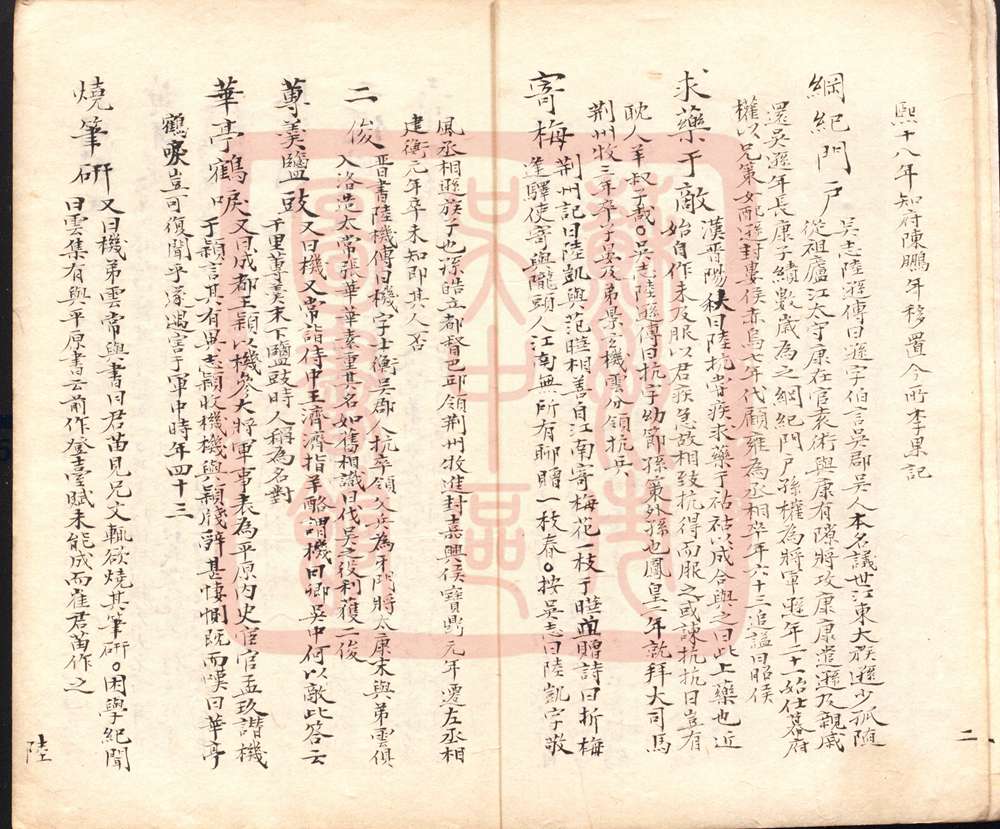 熙十八年知府陳鵬年移置今所李果記
綱紀門戶 吳志陸遜傳曰遜字伯言吳郡吳人本名議世江東大族遜少孤隨
從祖廬江太守康在官袁術與康有隙將攻康康遣遜及親戚
還吳遜年長康子績數歲為之綱紀門戶孫權為將軍遜年二十一始仕幕府
權以兄策女配遜封婁侯赤烏七年代顧雍為丞相卒年六十三追謚曰昭侯
求藥于敵 漢晉陽秋曰陸抗嘗疾求藥于祜祜以成合與之曰此上藥也近
始自作未及服以君疾急故相致抗得而服之或諫抗抗曰豈有
酖人羊叔子哉○吳志陸遜傳曰抗字幼節孫策外孫也鳳皇二年就拜大司馬
荆州牧三年卒子晏及弟景之機雲分領抗兵
寄梅 荆州記曰陸凱與范曄相善自江南寄梅花一枝于曄詣贈詩曰折梅
逢驛使寄與隴頭人江南無所有聊贈一枝春○按吳志曰陸凱字敬
風丞相遜族子也孫皓立都督巴邱領荆州牧進封嘉興侯寶鼎元年遷左丞相
建衡元年卒未知即其人否
二俊 晋書陸機傳曰機字士衡吳郡人抗卒領父兵為牙門將太康末與弟雲俱
入洛造太常張華華素重其名如舊相識曰伐吳之役利獲二俊
蓴羹鹽豉 又曰機又常詣侍中王濟濟指羊酪謂機曰卿吳中何以敵此答云
千里蓴羹未下鹽豉時人稱為名對
華亭鶴唳 又曰成都王穎以機參大將軍事表為平原内史宦官孟玖譖機
于穎言其有異志穎收機機與穎牋辭甚悽惻既而嘆曰華亭
鶴唳豈可復聞乎遂遇害于軍中時年四十三
燒筆研 又曰機弟雲常與書曰君苗見兄文輒欲燒其筆研○困學紀聞
曰雲集有與平原書云前作登臺賦未能成而崔君苗作之
二
陸